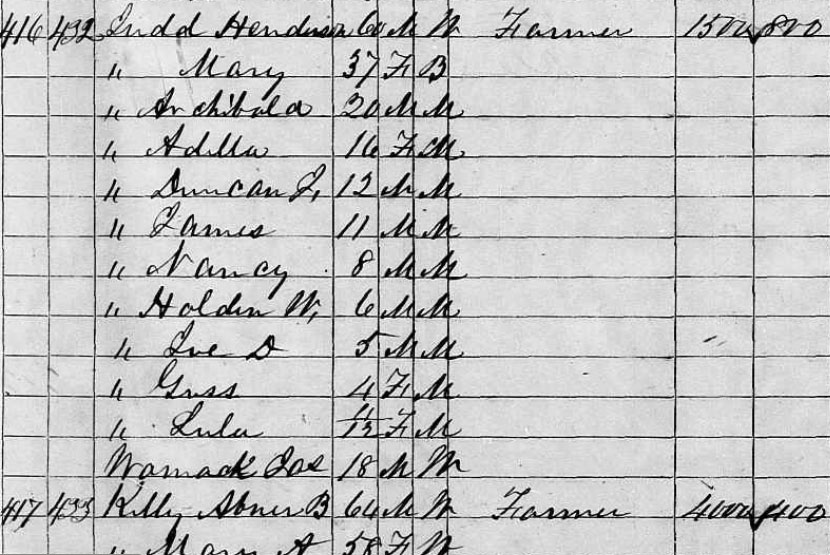 416 432 Judd Henderson 60 M W Farmer 1500 800
" Mary 37 F B
" Archibald 20 M M
" Adilla 16 F M
" Duncan J. 12 M M
" James 11 M M
" Nancy 8 M M
" Holdin W. 6 M M
" D 5 M M
" Guss 4 F M
" Lula 11/12 F M
Womack Jas 18 M W
417 433 Killy Abner B 64 M W Farmer 4000 400
" Mary A 58 F W